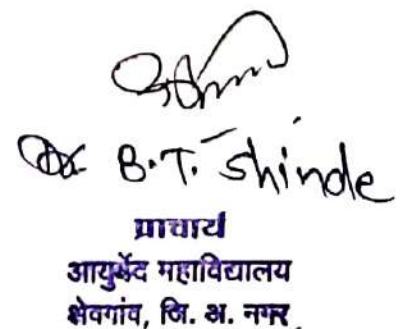 Dr. B.T. Shinde
प्राचार्य
आयुर्वेद महाविद्यालय
शेवगांव, जि. अ. नगर